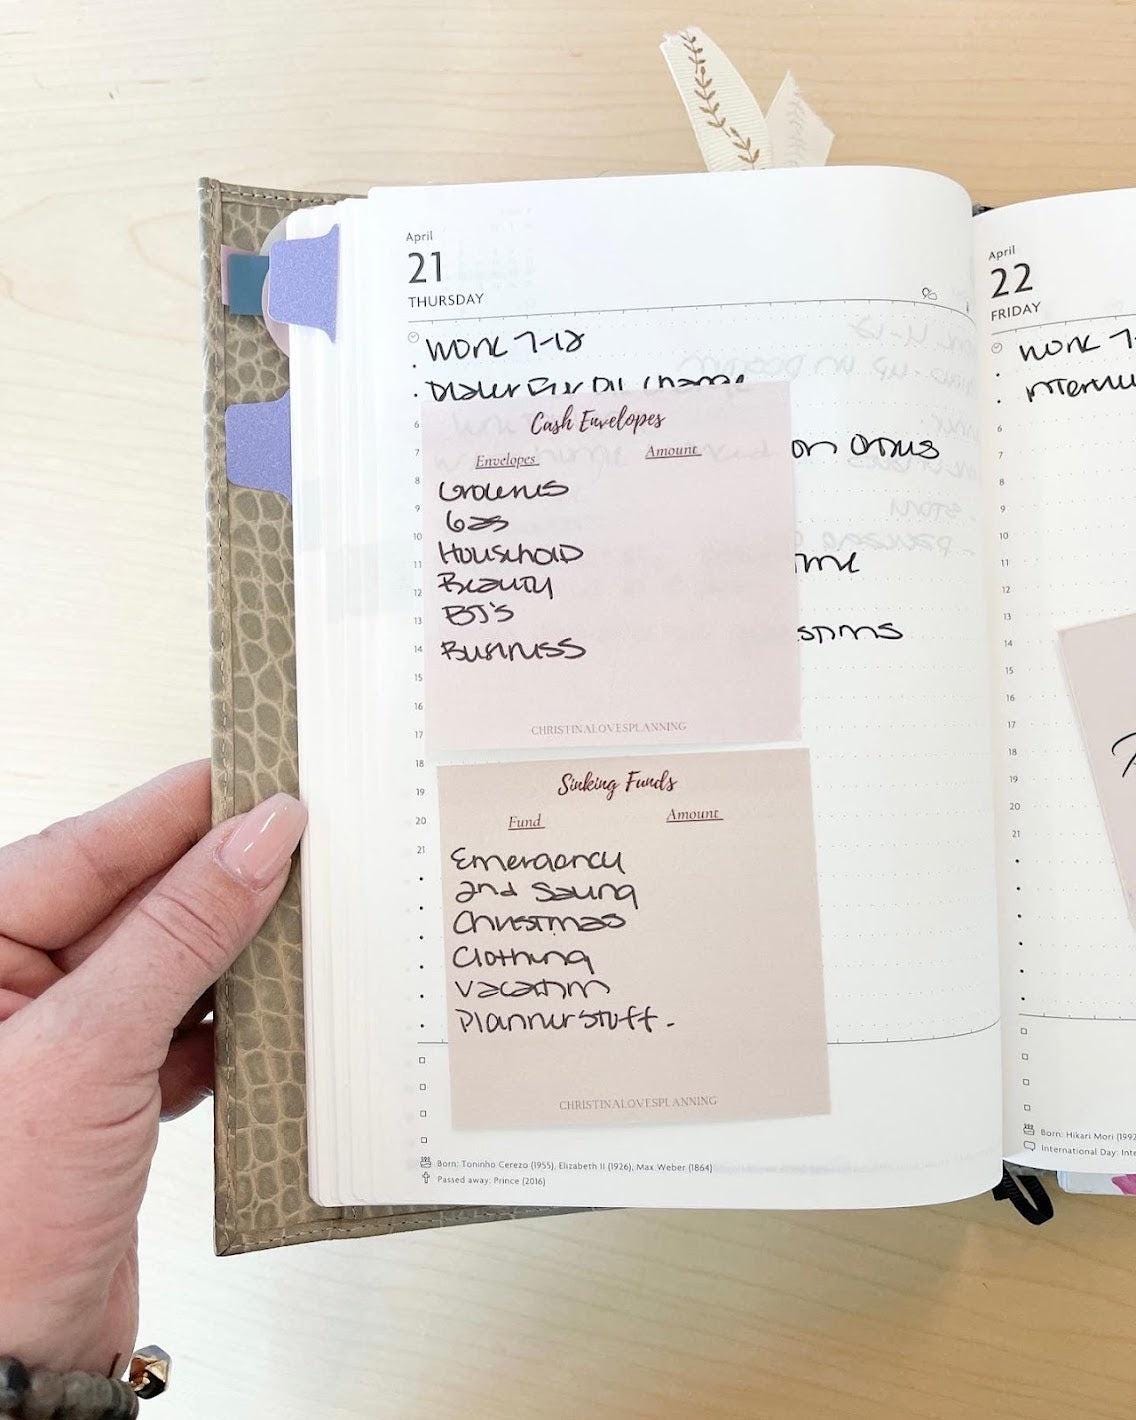 April
21
THURSDAY
WORK 7-12
Oil Change
Cash Envelopes
Envelopes Amount
Groceries
Gas
Household
Beauty
BJ's
Business
CHRISTINALOVESPLANNING
on
Sinking Funds
Fund Amount
Emergency
2nd Saving
Christmas
Clothing
Vacation
Planner stuff.
CHRISTINALOVESPLANNING
6
7
8
9
10
11
12
13
14
15
16
17
18
19
20
21
Born: Toninho Cerezo (1955), Elizabeth II (1926), Max Weber (1864)
Passed away: Prince (2016)
April
22
FRIDAY
WORK 7-
6
7
8
9
10
11
12
13
14
15
16
17
18
19
20
21
Born: Hikari Mori (1992
International Day: Inte